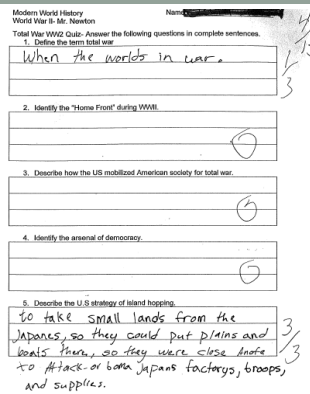 Modern World History
Name
World War II- Mr. Newton
4
Total War WW2 Quiz- Answer the following questions in complete sentences.
1. Define the term total war
When the worlds in war.
1/3
2. Identify the "Home Front" during WWII.
0
3. Describe how the US mobilized American society for total war.
0
4. Identify the arsenal of democracy.
0
5. Describe the U.S strategy of island hopping.
to take small lands from the
Japanes, so they could put plains and
boats there, so they were close Anofe
3/3
to Attack or bomb Japans factorys, troops,
and supplies.